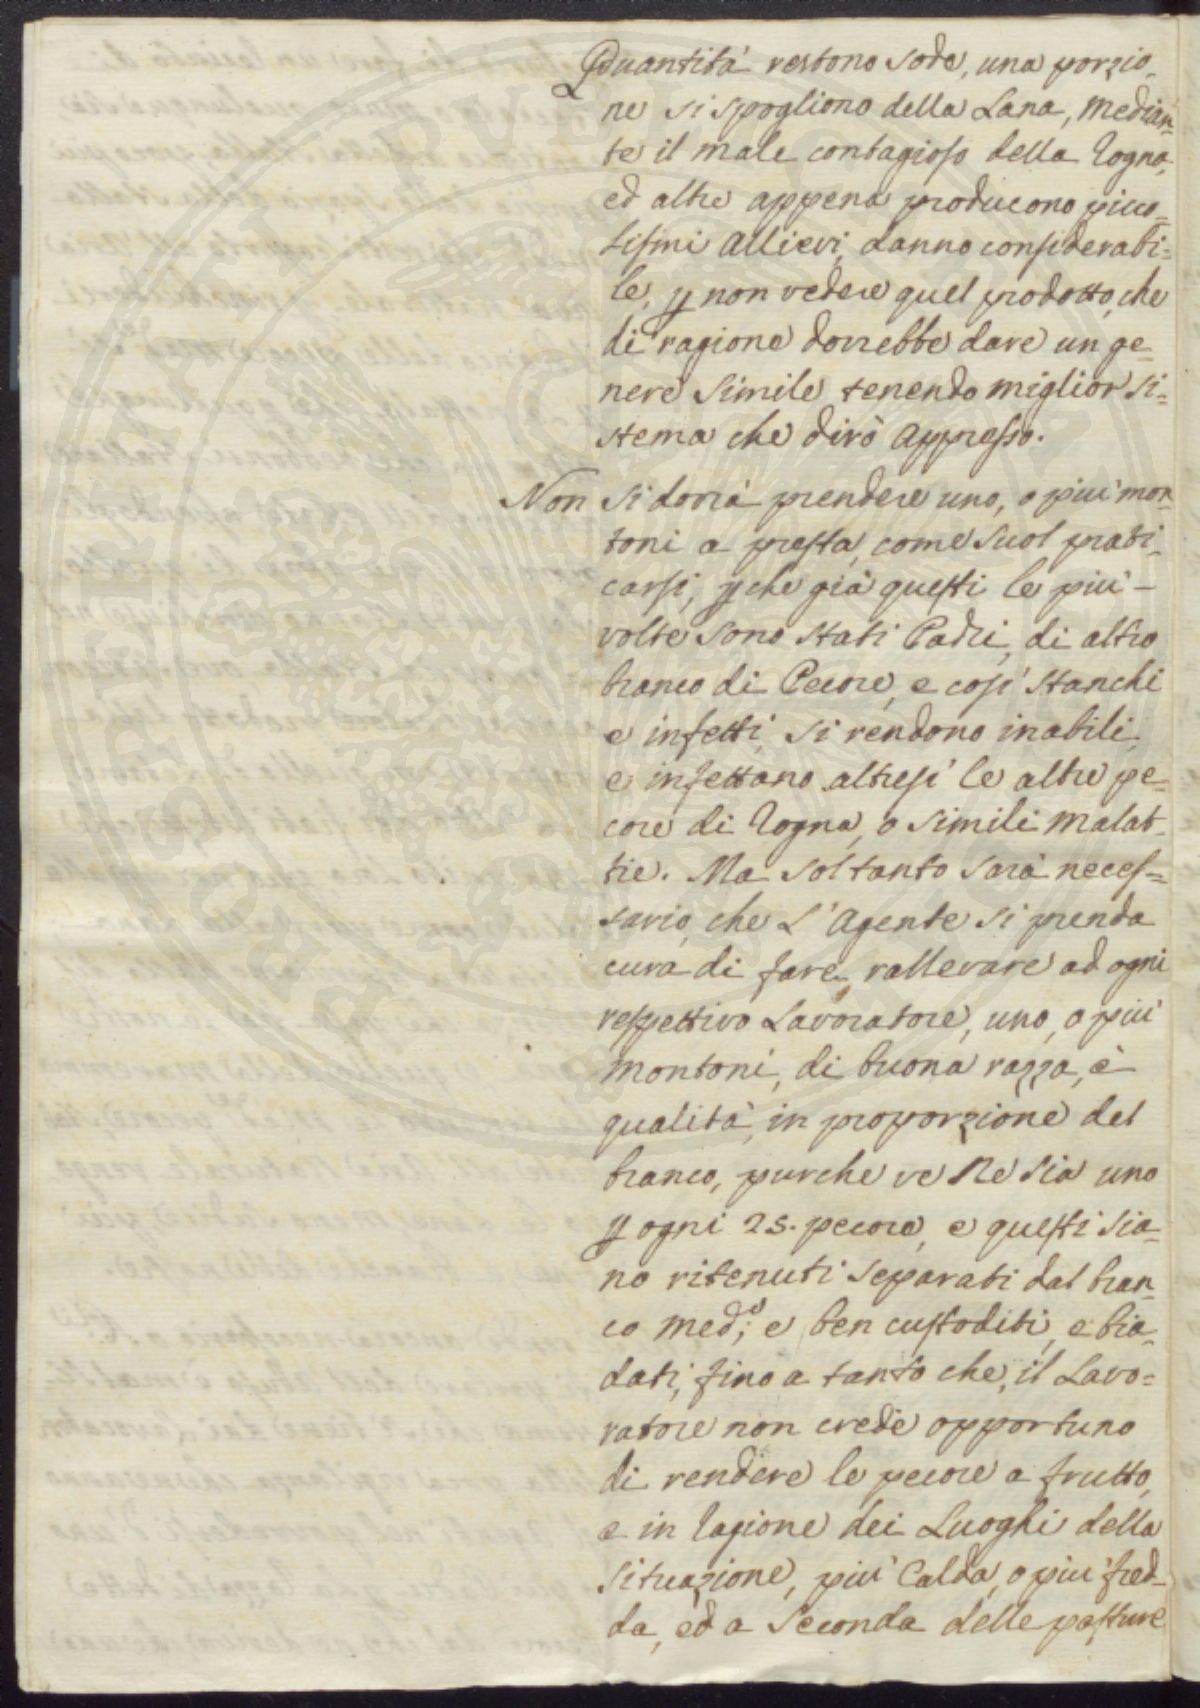 Quantità restono sode, una porzio-
ne si spogliono della Lana, median-
te il male contagioso della Rogna,
ed altre appena producono picco-
lissimi Allievi, danno considerabi=
le, p non vedere quel prodotto, che
di ragione dovrebbe dare un ge-
nere simile tenendo miglior si=
stema che dirò appresso.
Non si dovrà prendere uno, o più mon-
toni a presta, come suol prati-
carsi, p che già questi le più -
volte sono stati Padri, di altro
branco di Pecore, e così stanchi
e infetti, si rendono inabili,
e infettano altresì le altre pe-
core di Rogna, o simili malat-
tie. Ma soltanto sarà neces=
sario, che L'Agente si prenda
cura di fare rallevare ad ogni
respettivo Lavoratore, uno, o più
montoni, di buona razza, è
qualità, in proporzione del
branco, purche ve Ne sia uno
p ogni 25. pecore, e questi sia-
no ritenuti separati dal bran-
co med;o e ben custoditi, e bia-
dati, fino a tanto che, il Lavo=
ratore non crede opportuno
di rendere le pecore a frutto,
e in ragione dei Luoghi della
situazione, più Calda, o più fred-
da, ed a seconda delle pasture